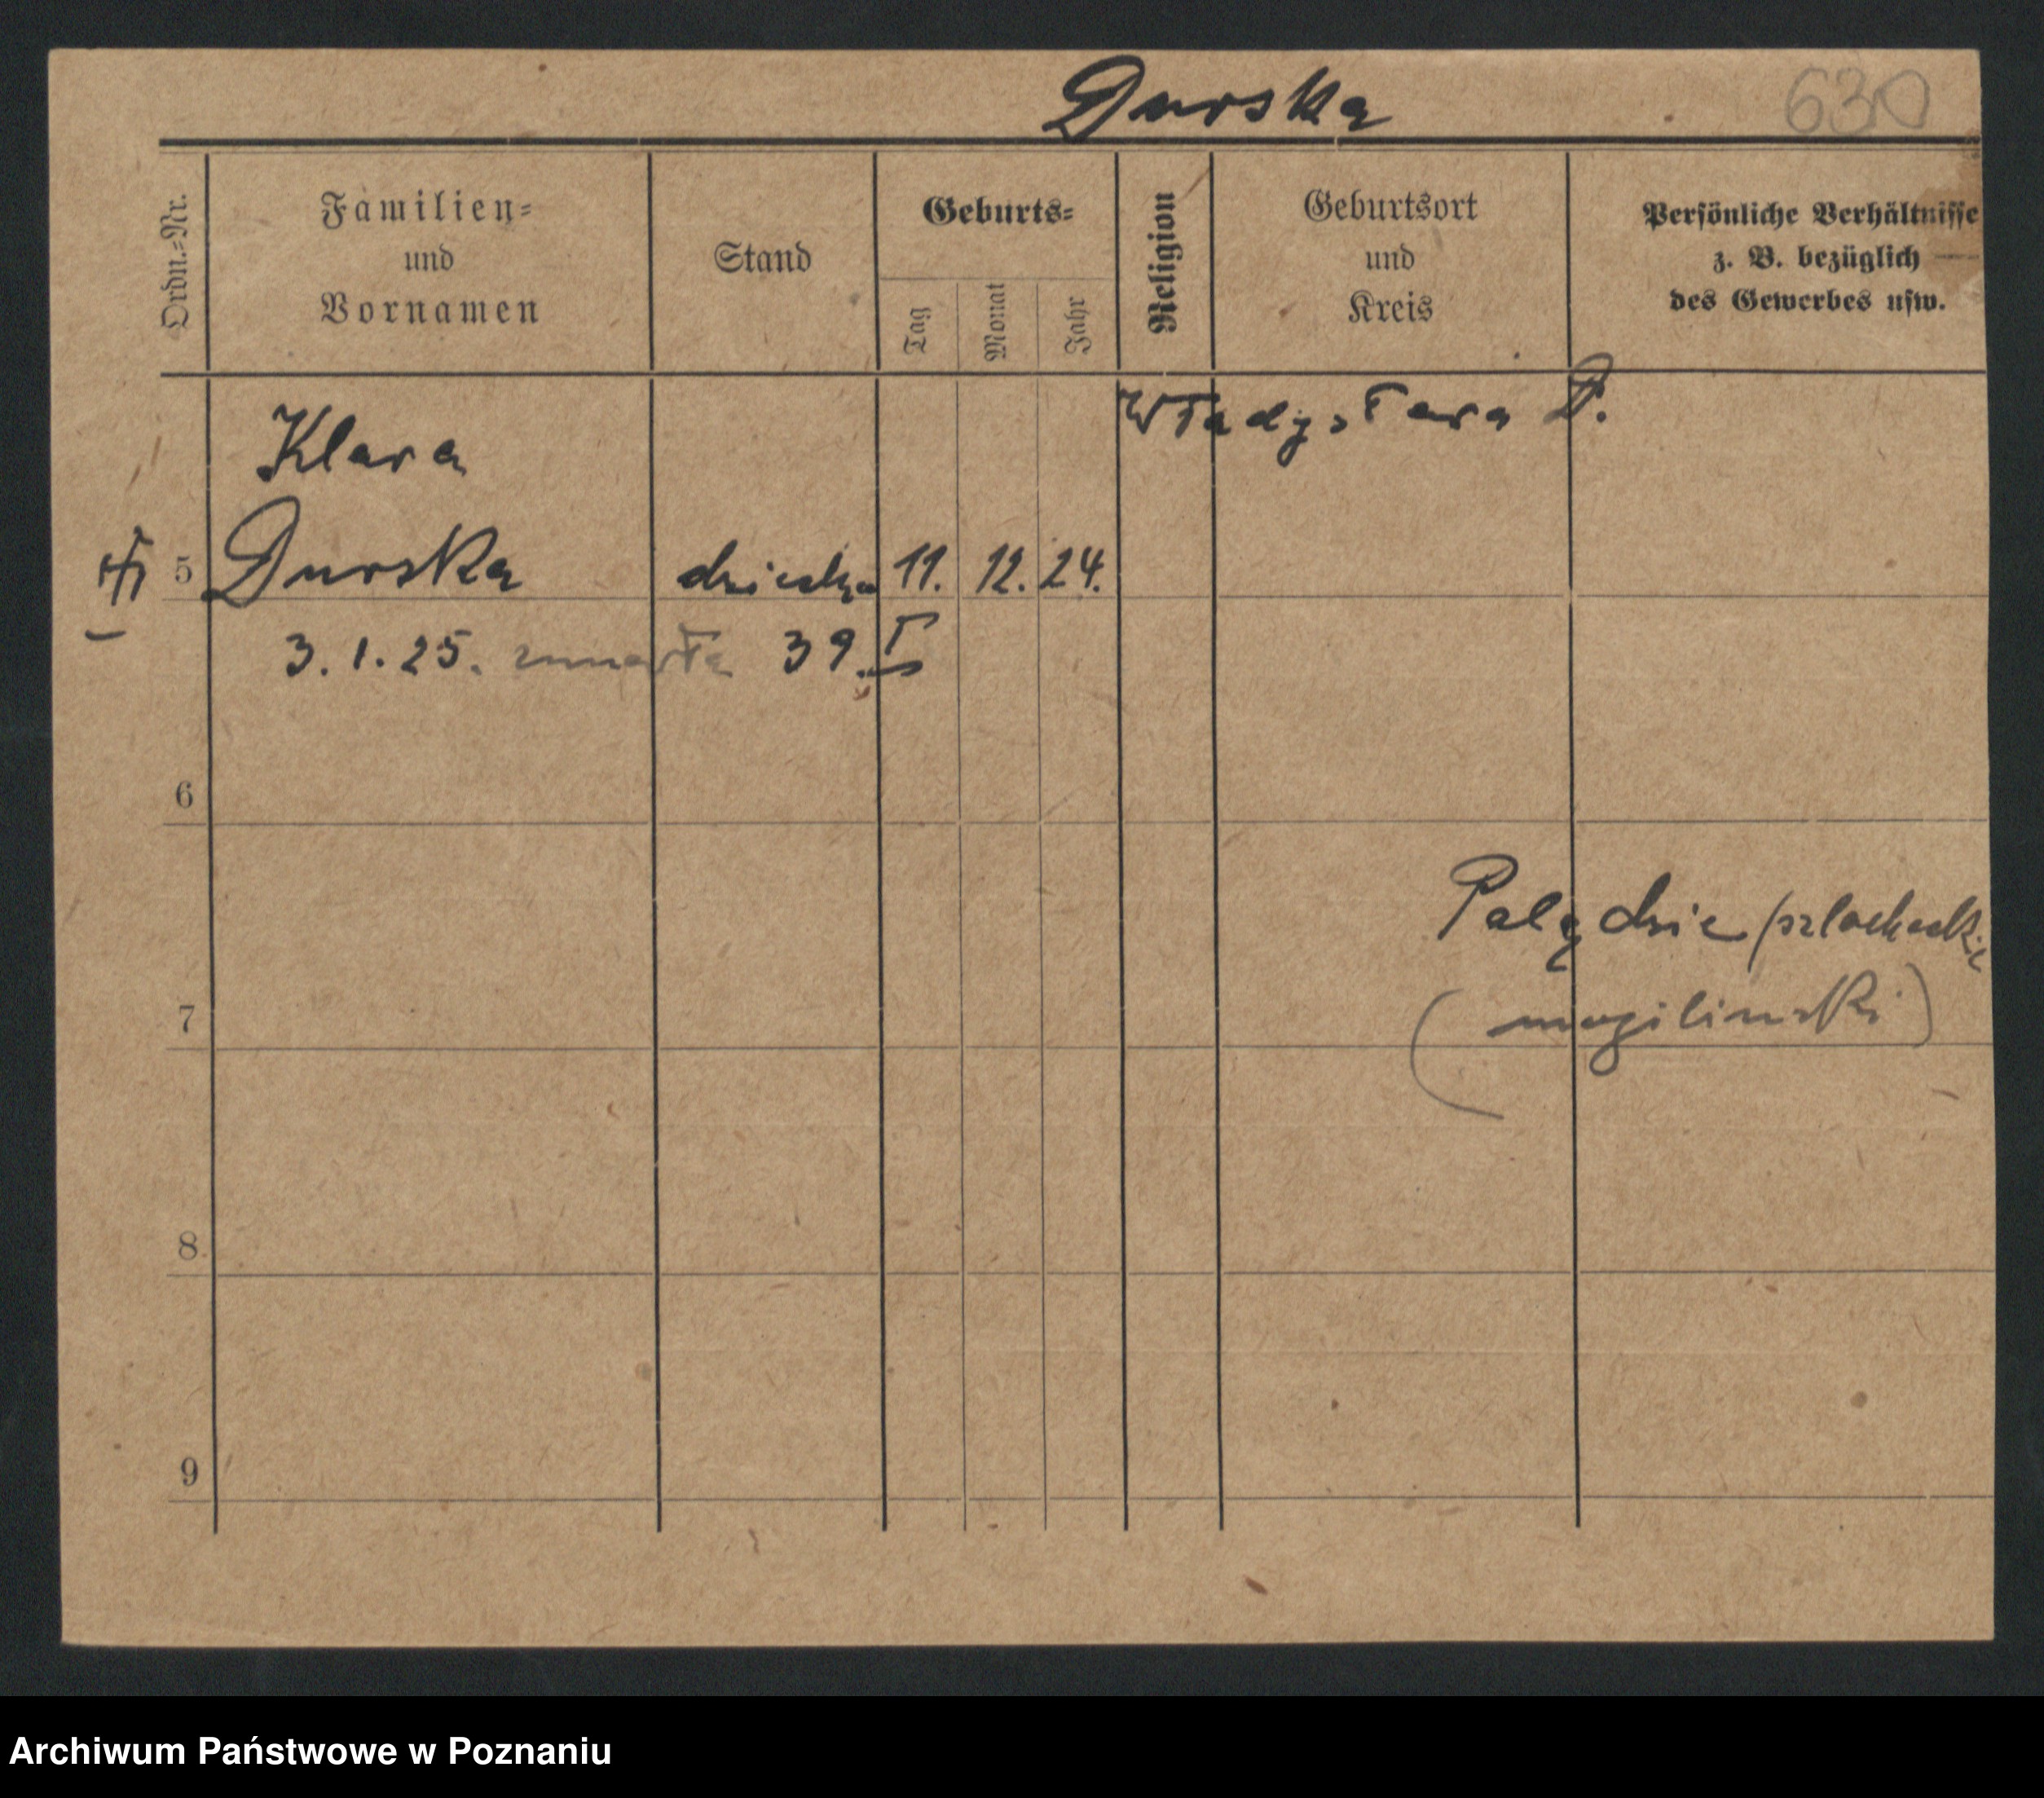 Durska 630
Ordn.=Nr.
Familien=
und
Vornamen
Stand
Geburts=
Tag Monat Jahr
Religion
Geburtsort
und
Kreis
Persönliche Verhältnisse
z. B. bezüglich
des Gewerbes usw.
Władysława D.
Klara
5 Durska dziecko 11. 12. 24.
3.1.25. zmarła 39. I
6
Palędzie szlacheckie
7 (mogilinski)
8
9
Archiwum Państwowe w Poznaniu